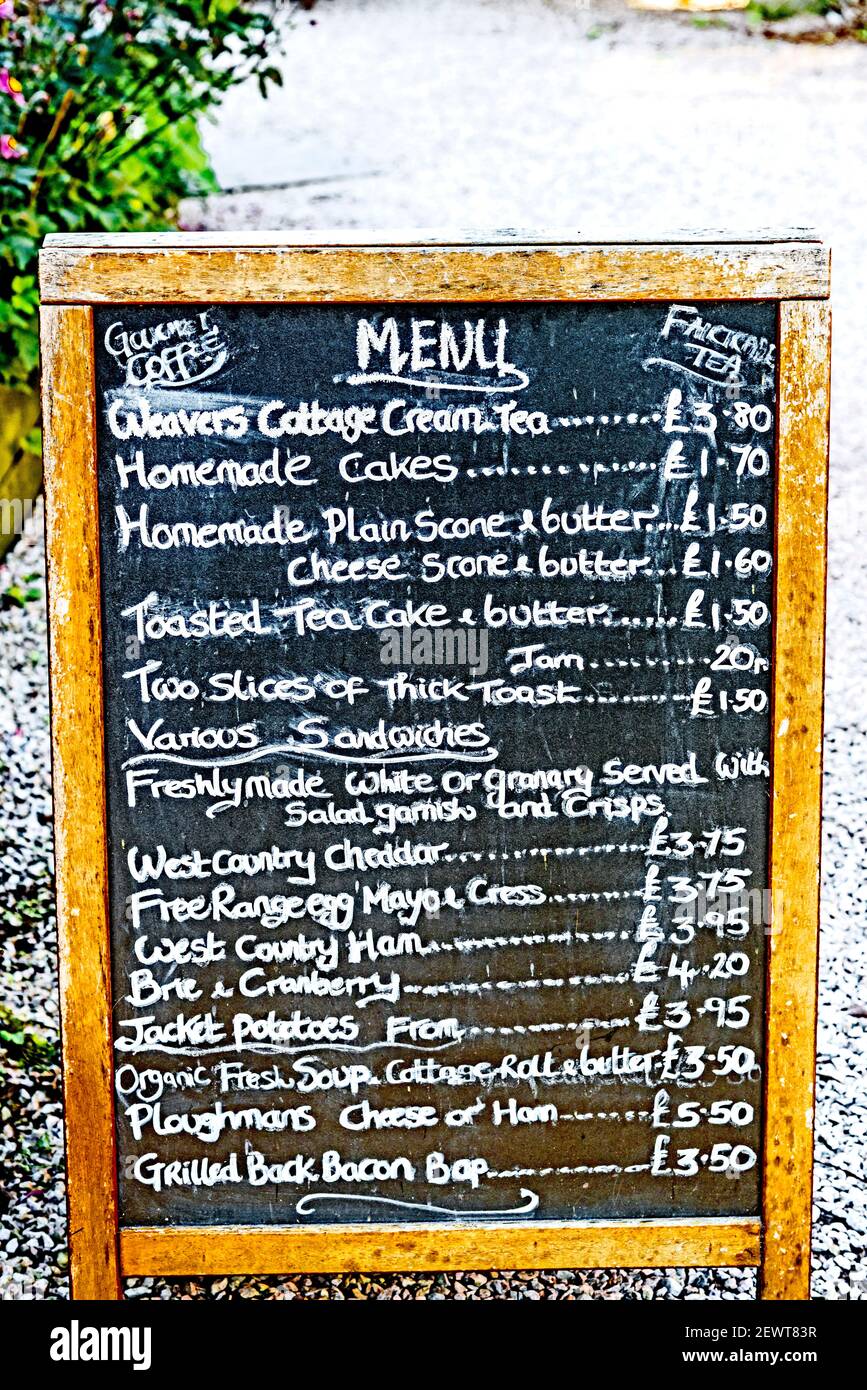 Gourmet Coffee
MENU
Fairtrade TEA
Weavers Cottage Cream Tea........£3.80
Homemade Cakes........£1.70
Homemade Plain Scone & butter....£1.50
Cheese Scone & butter...£1.60
Toasted Tea Cake & butter........£1.50
Jam........20p
Two Slices of Thick Toast........£1.50
Various Sandwiches
Freshly made White Or granary Served With
Salad garnish and Crisps
West Country Cheddar........£3.75
Free Range egg Mayo & Cress........£3.75
West Country Ham........£3.95
Brie & Cranberry........£4.20
Jacket Potatoes From........£3.95
Organic Fresh Soup Cottage Roll & butter.£3.50
Ploughmans Cheese or Ham........£5.50
Grilled Back Bacon Bap........£3.50
alamy
Image ID: 2EWT83R
www.alamy.com